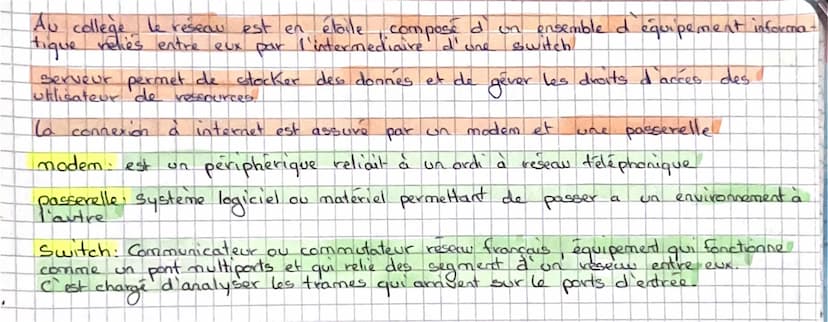 Au collège le réseau est en étoile, composé d'un ensemble d'équipement informa-
tique reliés entre eux par l'intermédiaire d'une switch
serveur permet de stocker des donnés et de gérer les droits d'accés des
utilisateur de ressources
la connexion à internet est assuré par un modem et une passerelle
modem : est un périphérique reliait à un ordi à réseau téléphonique
passerelle : système logiciel ou matériel permettant de passer a un environnement à
l'autre
Switch : Communicateur ou commutateur réseau français, équipement qui fonctionne
comme un pont multiports et qui relie des segment d'un réseau entre eux.
C'est chargé d'analyser les trames qui arrivent sur le ports d'entrée.